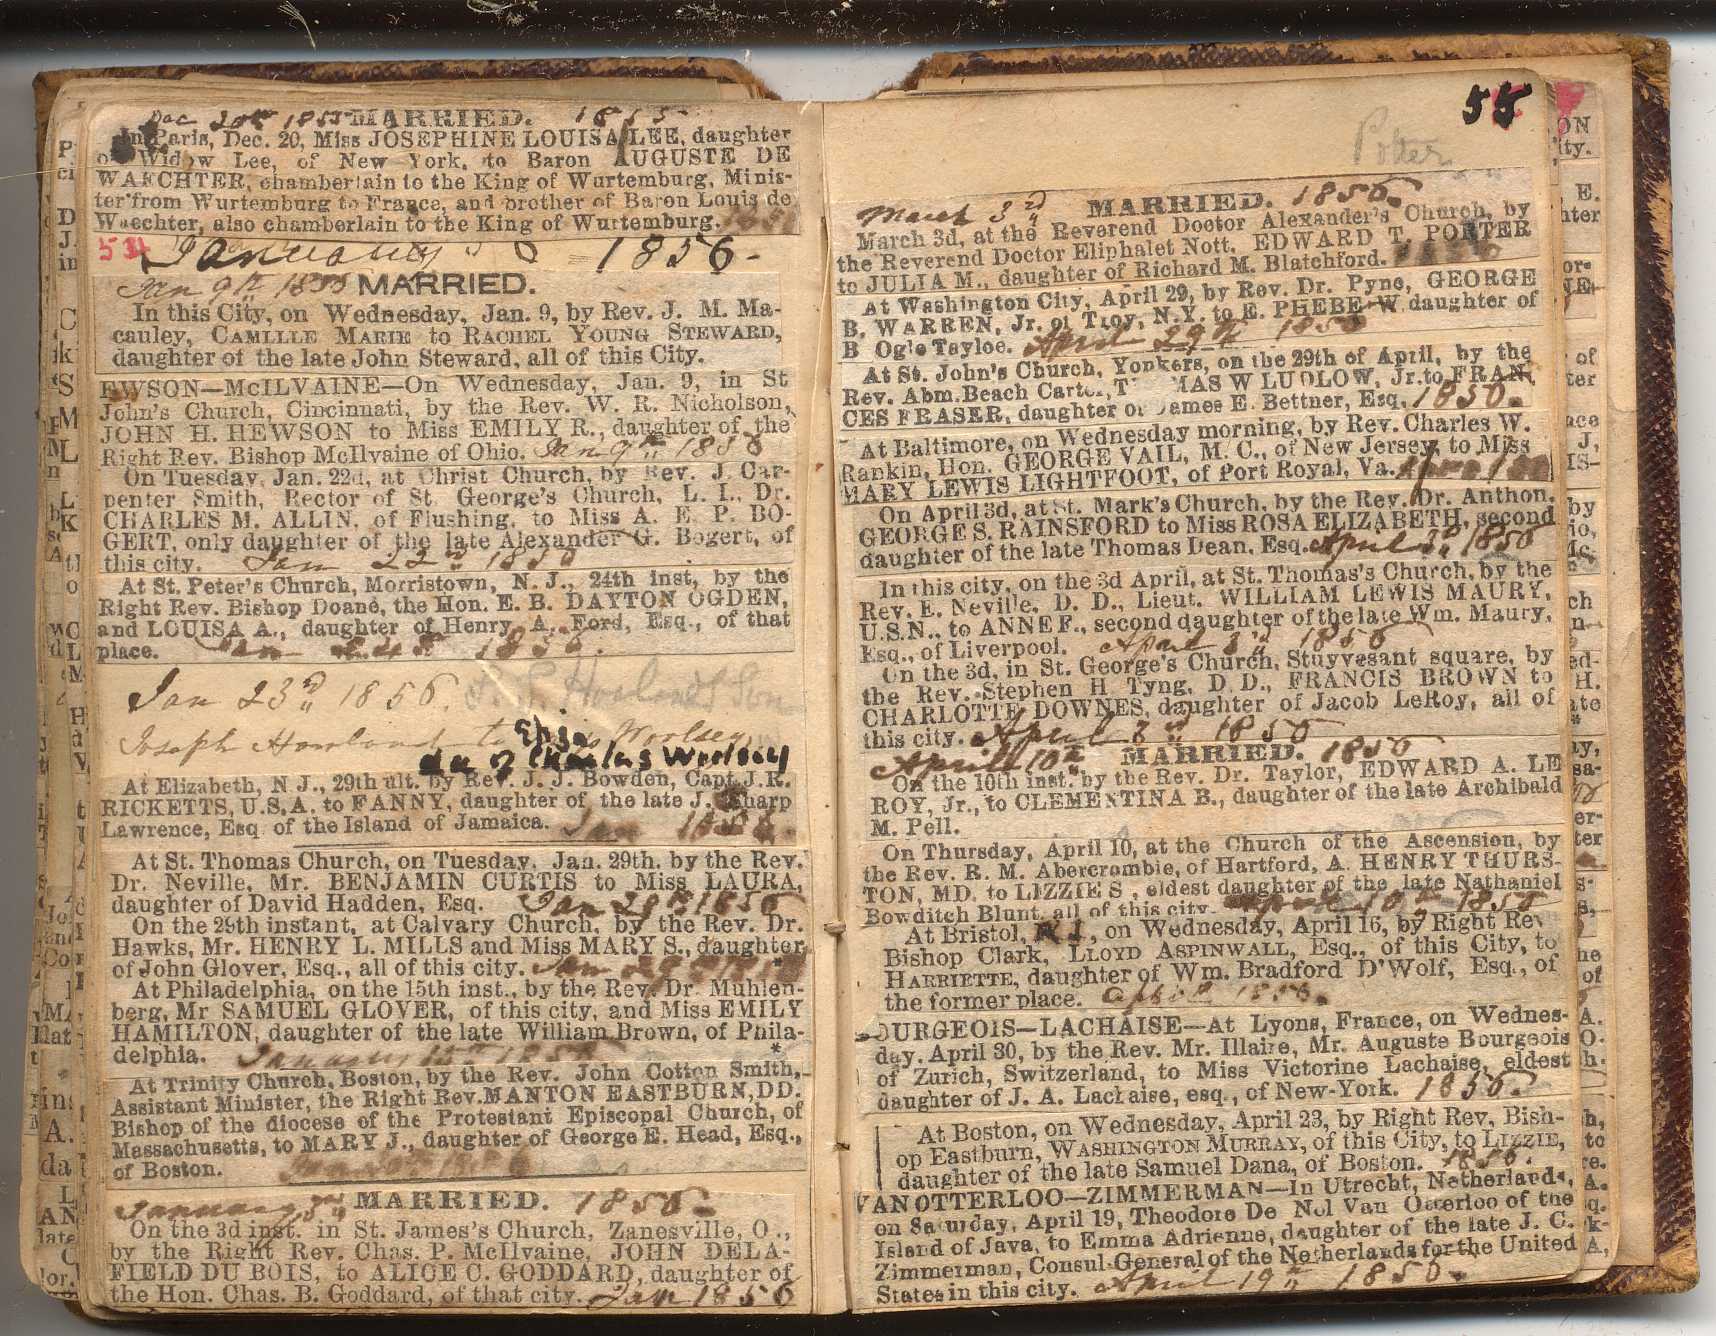 Dec 20th 1855 MARRIED. 1855
In Paris, Dec. 20, Miss JOSEPHINE LOUISA LEE, daughter
of Widow Lee, of New York, to Baron AUGUSTE DE
WAECHTER, chamberlain to the King of Wurtemburg, Minis-
ter from Wurtemburg to France, and brother of Baron Louis de
Waechter, also chamberlain to the King of Wurtemburg.
54 January 1856.
Jan 9th 1855 MARRIED.
In this City, on Wednesday, Jan. 9, by Rev. J. M. Ma-
cauley, CAMILLE MARIE to RACHEL YOUNG STEWARD,
daughter of the late John Steward, all of this City.
EWSON—McILVAINE—On Wednesday, Jan. 9, in St
John's Church, Cincinnati, by the Rev. W. R. Nicholson,
JOHN H. HEWSON to Miss EMILY R., daughter of the
Right Rev. Bishop McIlvaine of Ohio. Jan 9th 1856
On Tuesday, Jan. 22d, at Christ Church, by Rev. J. Car-
penter Smith, Rector of St. George's Church, L. I., Dr.
CHARLES M. ALLIN, of Flushing, to Miss A. E. P. BO-
GERT, only daughter of the late Alexander G. Bogert, of
this city. Jan 22d 1856
At St. Peter's Church, Morristown, N. J., 24th inst, by the
Right Rev. Bishop Doane, the Hon. E. B. DAYTON OGDEN,
and LOUISA A., daughter of Henry A. Ford, Esq., of that
place. Jan 24th 1856.
Jan 23rd 1856. Howlands Son
Joseph Howland to Eliza Woolsey
dau of Charles Woolsey
At Elizabeth, N J., 29th ult. by Rev. J. J. Bowden, Capt. J. R.
RICKETTS, U.S.A. to FANNY, daughter of the late J. Sharp
Lawrence, Esq of the Island of Jamaica. Jan 1856.
At St. Thomas Church, on Tuesday, Jan. 29th, by the Rev.
Dr. Neville, Mr. BENJAMIN CURTIS to Miss LAURA,
daughter of David Hadden, Esq. Jan 29th 1856
On the 29th instant, at Calvary Church, by the Rev. Dr.
Hawks, Mr. HENRY L. MILLS and Miss MARY S., daughter
of John Glover, Esq., all of this city. Jan 29th 1856
At Philadelphia, on the 15th inst., by the Rev. Dr. Muhlen-
berg, Mr SAMUEL GLOVER, of this city, and Miss EMILY
HAMILTON, daughter of the late William Brown, of Phila-
delphia. January 15th 1856 *
At Trinity Church, Boston, by the Rev. John Cotton Smith,
Assistant Minister, the Right Rev. MANTON EASTBURN, DD.
Bishop of the diocese of the Protestant Episcopal Church, of
Massachusetts, to MARY J., daughter of George E. Head, Esq.,
of Boston.
January 3rd MARRIED. 1856.
On the 3d inst. in St. James's Church, Zanesville, O.,
by the Right Rev. Chas. P. McIlvaine, JOHN DELA-
FIELD DU BOIS, to ALICE C. GODDARD, daughter of
the Hon. Chas. B. Goddard, of that city. Jan 1856
55
Potter
March 3rd MARRIED. 1856.
March 3d, at the Reverend Doctor Alexander's Church, by
the Reverend Doctor Eliphalet Nott, EDWARD T. PORTER
to JULIA M., daughter of Richard M. Blatchford.
At Washington City, April 29, by Rev. Dr. Pyne, GEORGE
B. WARREN, Jr. of Troy, N.Y. to E. PHEBE W daughter of
B Ogle Tayloe. April 29th 1856
At St. John's Church, Yonkers, on the 29th of April, by the
Rev. Abm. Beach Carter, MAS W LUDLOW, Jr. to FRAN
CES FRASER, daughter of James E. Bettner, Esq. 1856.
At Baltimore, on Wednesday morning, by Rev. Charles W.
Rankin, Hon. GEORGE VAIL, M. C., of New Jersey, to Miss
MARY LEWIS LIGHTFOOT, of Port Royal, Va.
On April 3d, at St. Mark's Church, by the Rev. Dr. Anthon,
GEORGE S. RAINSFORD to Miss ROSA ELIZABETH, second
daughter of the late Thomas Dean, Esq. April 3d 1856
In this city, on the 3d April, at St. Thomas's Church, by the
Rev. E. Neville, D. D., Lieut. WILLIAM LEWIS MAURY,
U.S.N., to ANNE F., second daughter of the late Wm. Maury,
Esq., of Liverpool. April 3rd 1856
On the 3d, in St. George's Church, Stuyvesant square, by
the Rev. Stephen H Tyng, D. D., FRANCIS BROWN to
CHARLOTTE DOWNES, daughter of Jacob LeRoy, all of
this city. April 3rd 1856
April 10th MARRIED. 1856
On the 10th inst. by the Rev. Dr. Taylor, EDWARD A. LE
ROY, Jr., to CLEMENTINA B., daughter of the late Archibald
M. Pell.
On Thursday, April 10, at the Church of the Ascension, by
the Rev. R. M. Abercrombie, of Hartford, A. HENRY THURS-
TON, MD. to LIZZIE S, eldest daughter of the late Nathaniel
Bowditch Blunt, all of this city. April 10th 1856
At Bristol, , on Wednesday, April 16, by Right Rev
Bishop Clark, LLOYD ASPINWALL, Esq., of this City, to
HARRIETTE, daughter of Wm. Bradford D'Wolf, Esq., of
the former place. April 1856.
OURGEOIS—LACHAISE—At Lyons, France, on Wednes-
day, April 30, by the Rev. Mr. Illaire, Mr. Auguste Bourgeois
of Zurich, Switzerland, to Miss Victorine Lachaise, eldest
daughter of J. A. Lachaise, esq., of New-York. 1856.
At Boston, on Wednesday, April 23, by Right Rev. Bish-
op Eastburn, WASHINGTON MURRAY, of this City, to LIZZIE,
daughter of the late Samuel Dana, of Boston. 1856.
VAN OTTERLOO—ZIMMERMAN—In Utrecht, Netherlands,
on Saturday, April 19, Theodore De Nol Van Otterloo of the
Island of Java, to Emma Adrienne, daughter of the late J. C.
Zimmerman, Consul-General of the Netherlands for the United
States in this city. April 19th 1856.